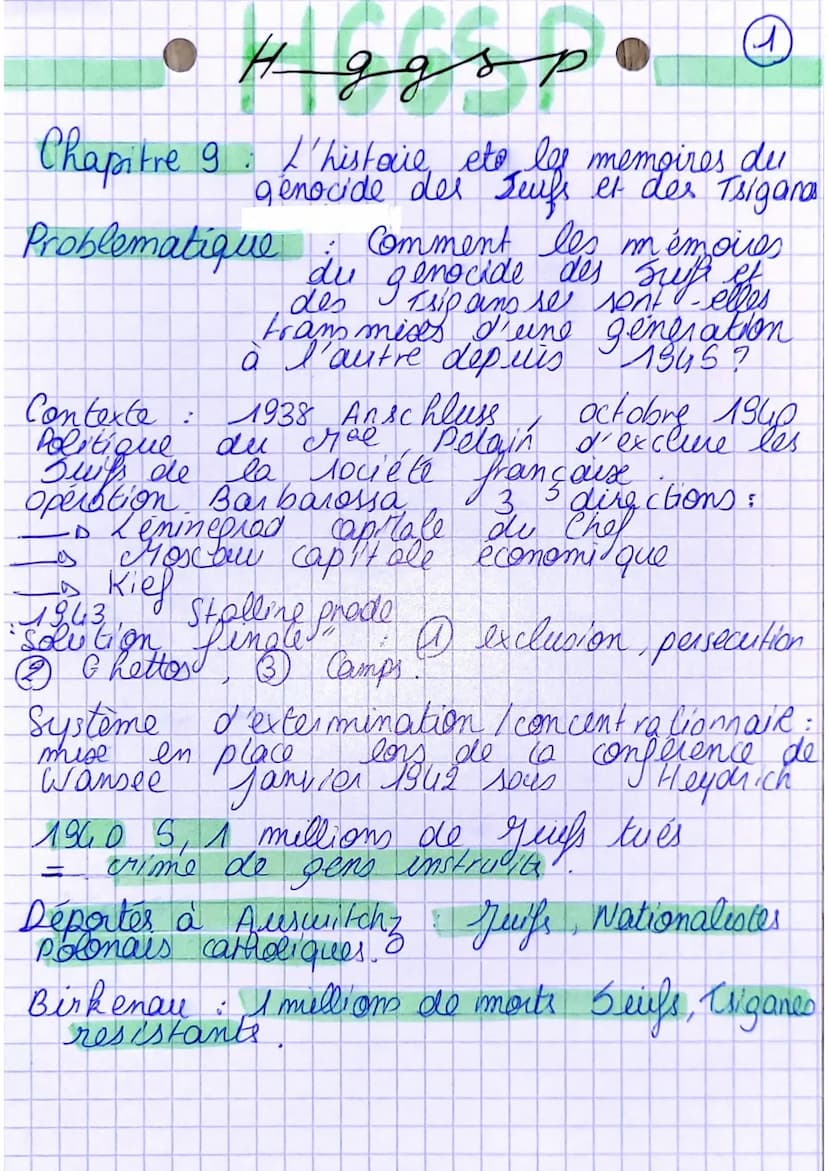 HGGSP
Hggsp
1
Chapitre 9 : L'histoire, ete les memoires du
génocide des Juifs et des Tsiganes
Problematique : Comment les mémoires
du genocide des Juifs et
des Tsigans se sont-elles
transmises d'une géneration
à l'autre depuis 1945 ?
Contexte : 1938 Anschluss, octobre 1940
Politique du Mal Pétain d'exclure les
Juifs de la société française.
opération Barbarossa 3 directions :
→ Léninegrad capitale du Chef
→ Moscou capitale économique
→ Kief
1943 Stalline
"Solution finale" : ① exclusion, persécution
② Ghettos, ③ Camps.
Système d'extermination / concentrationnaire :
mise en place lors de la conférence de
Wansee janvier 1942 sous Heydrich
1940 5,1 millions de Juifs tués
= crime de gens instruits.
Déportés à Auswitchz : Juifs, Nationalistes
polonais catholiques.
Birkenau : 1 millions de morts Juifs, Tsiganes
resistants.